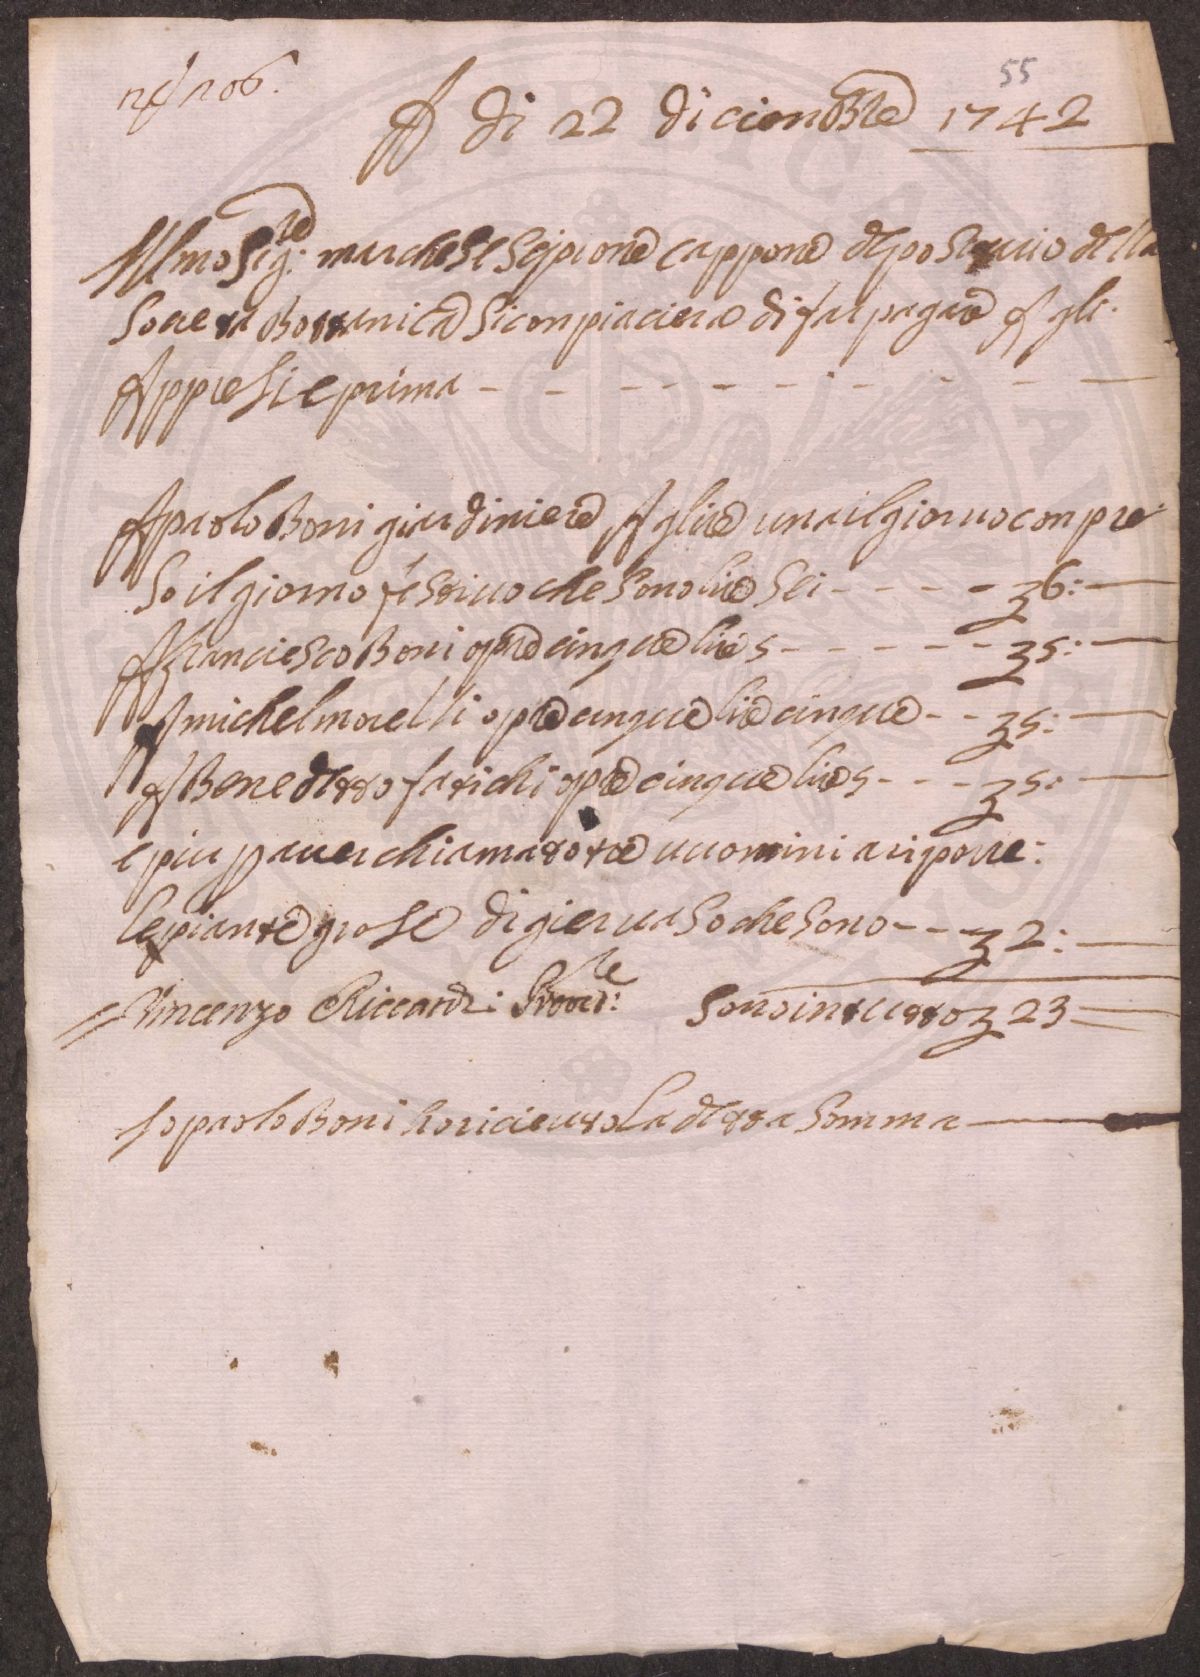 55
nº 106.
A di 22 dicienbre 1742
Illmo Sig:re marchese Scipione Cappone depositario della
Societa Bottanica Si conpiaciera di far pagare A gli:
Appresi e prima
A paolo Boni giardiniere A lire una il giorno conpre:
So il giorno festiuo che Sono lire Sei - - - - - 36:
A franciesco Boni opre cinque lire 5 - - - - - - 35:
A michel morelli opre cinque lire cinque - - 35:
A Benedetto fatichi opre cinque lire 5 - - - 35:
e piu p auer chiamato tre uuomini a riporre:
le piante grose di gieruaso che Sono - - - 32:
Vincenzo Riccardi: Provre: Sono in tutto 3 23
Io paolo Boni ho riceuto La detta Somma